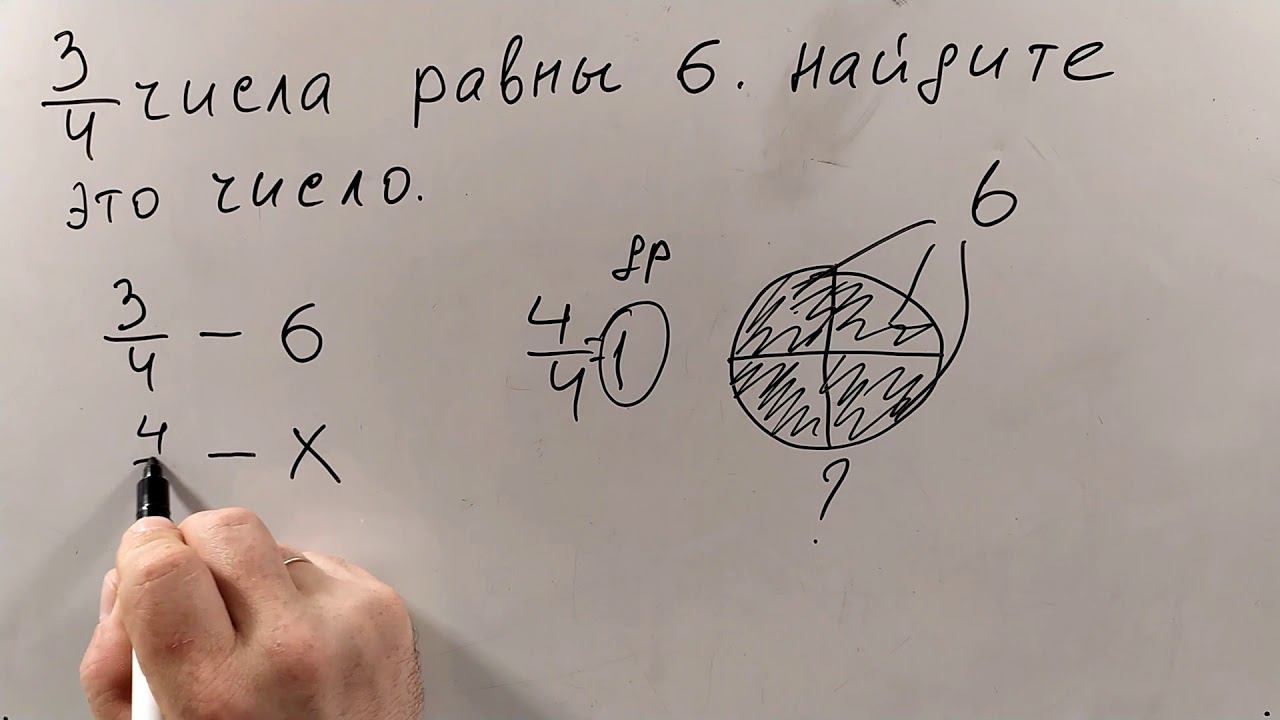 3/4 числа равны 6. Найдите
это число.
6
3/4 – 6
4/4 = 1
4 – x
?